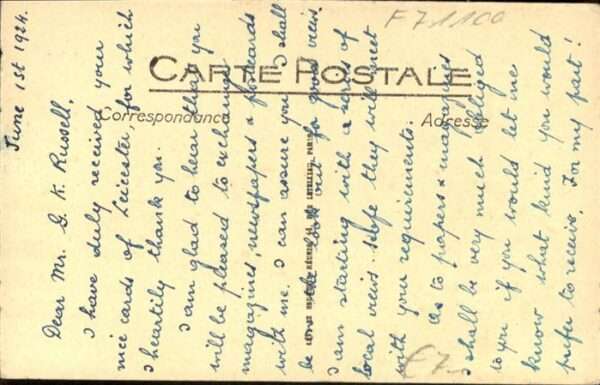 F 71100
CARTE POSTALE
Correspondance
Adresse
June 1st 1924.
Dear Mr. G. K. Russell,
I have duly received your
nice cards of Leicester, for which
I heartily thank you.
I am glad to hear that you
will be pleased to exchange
magazines, newspapers & postcards
with me. I can assure you I shall
be on the look out for good views.
I am starting with a series of
local views. I hope they will meet
with your requirements.
As to papers & magazines
I shall be very much obliged
to you if you would let me
know what kind you would
prefer to receive. For my part!
£7-